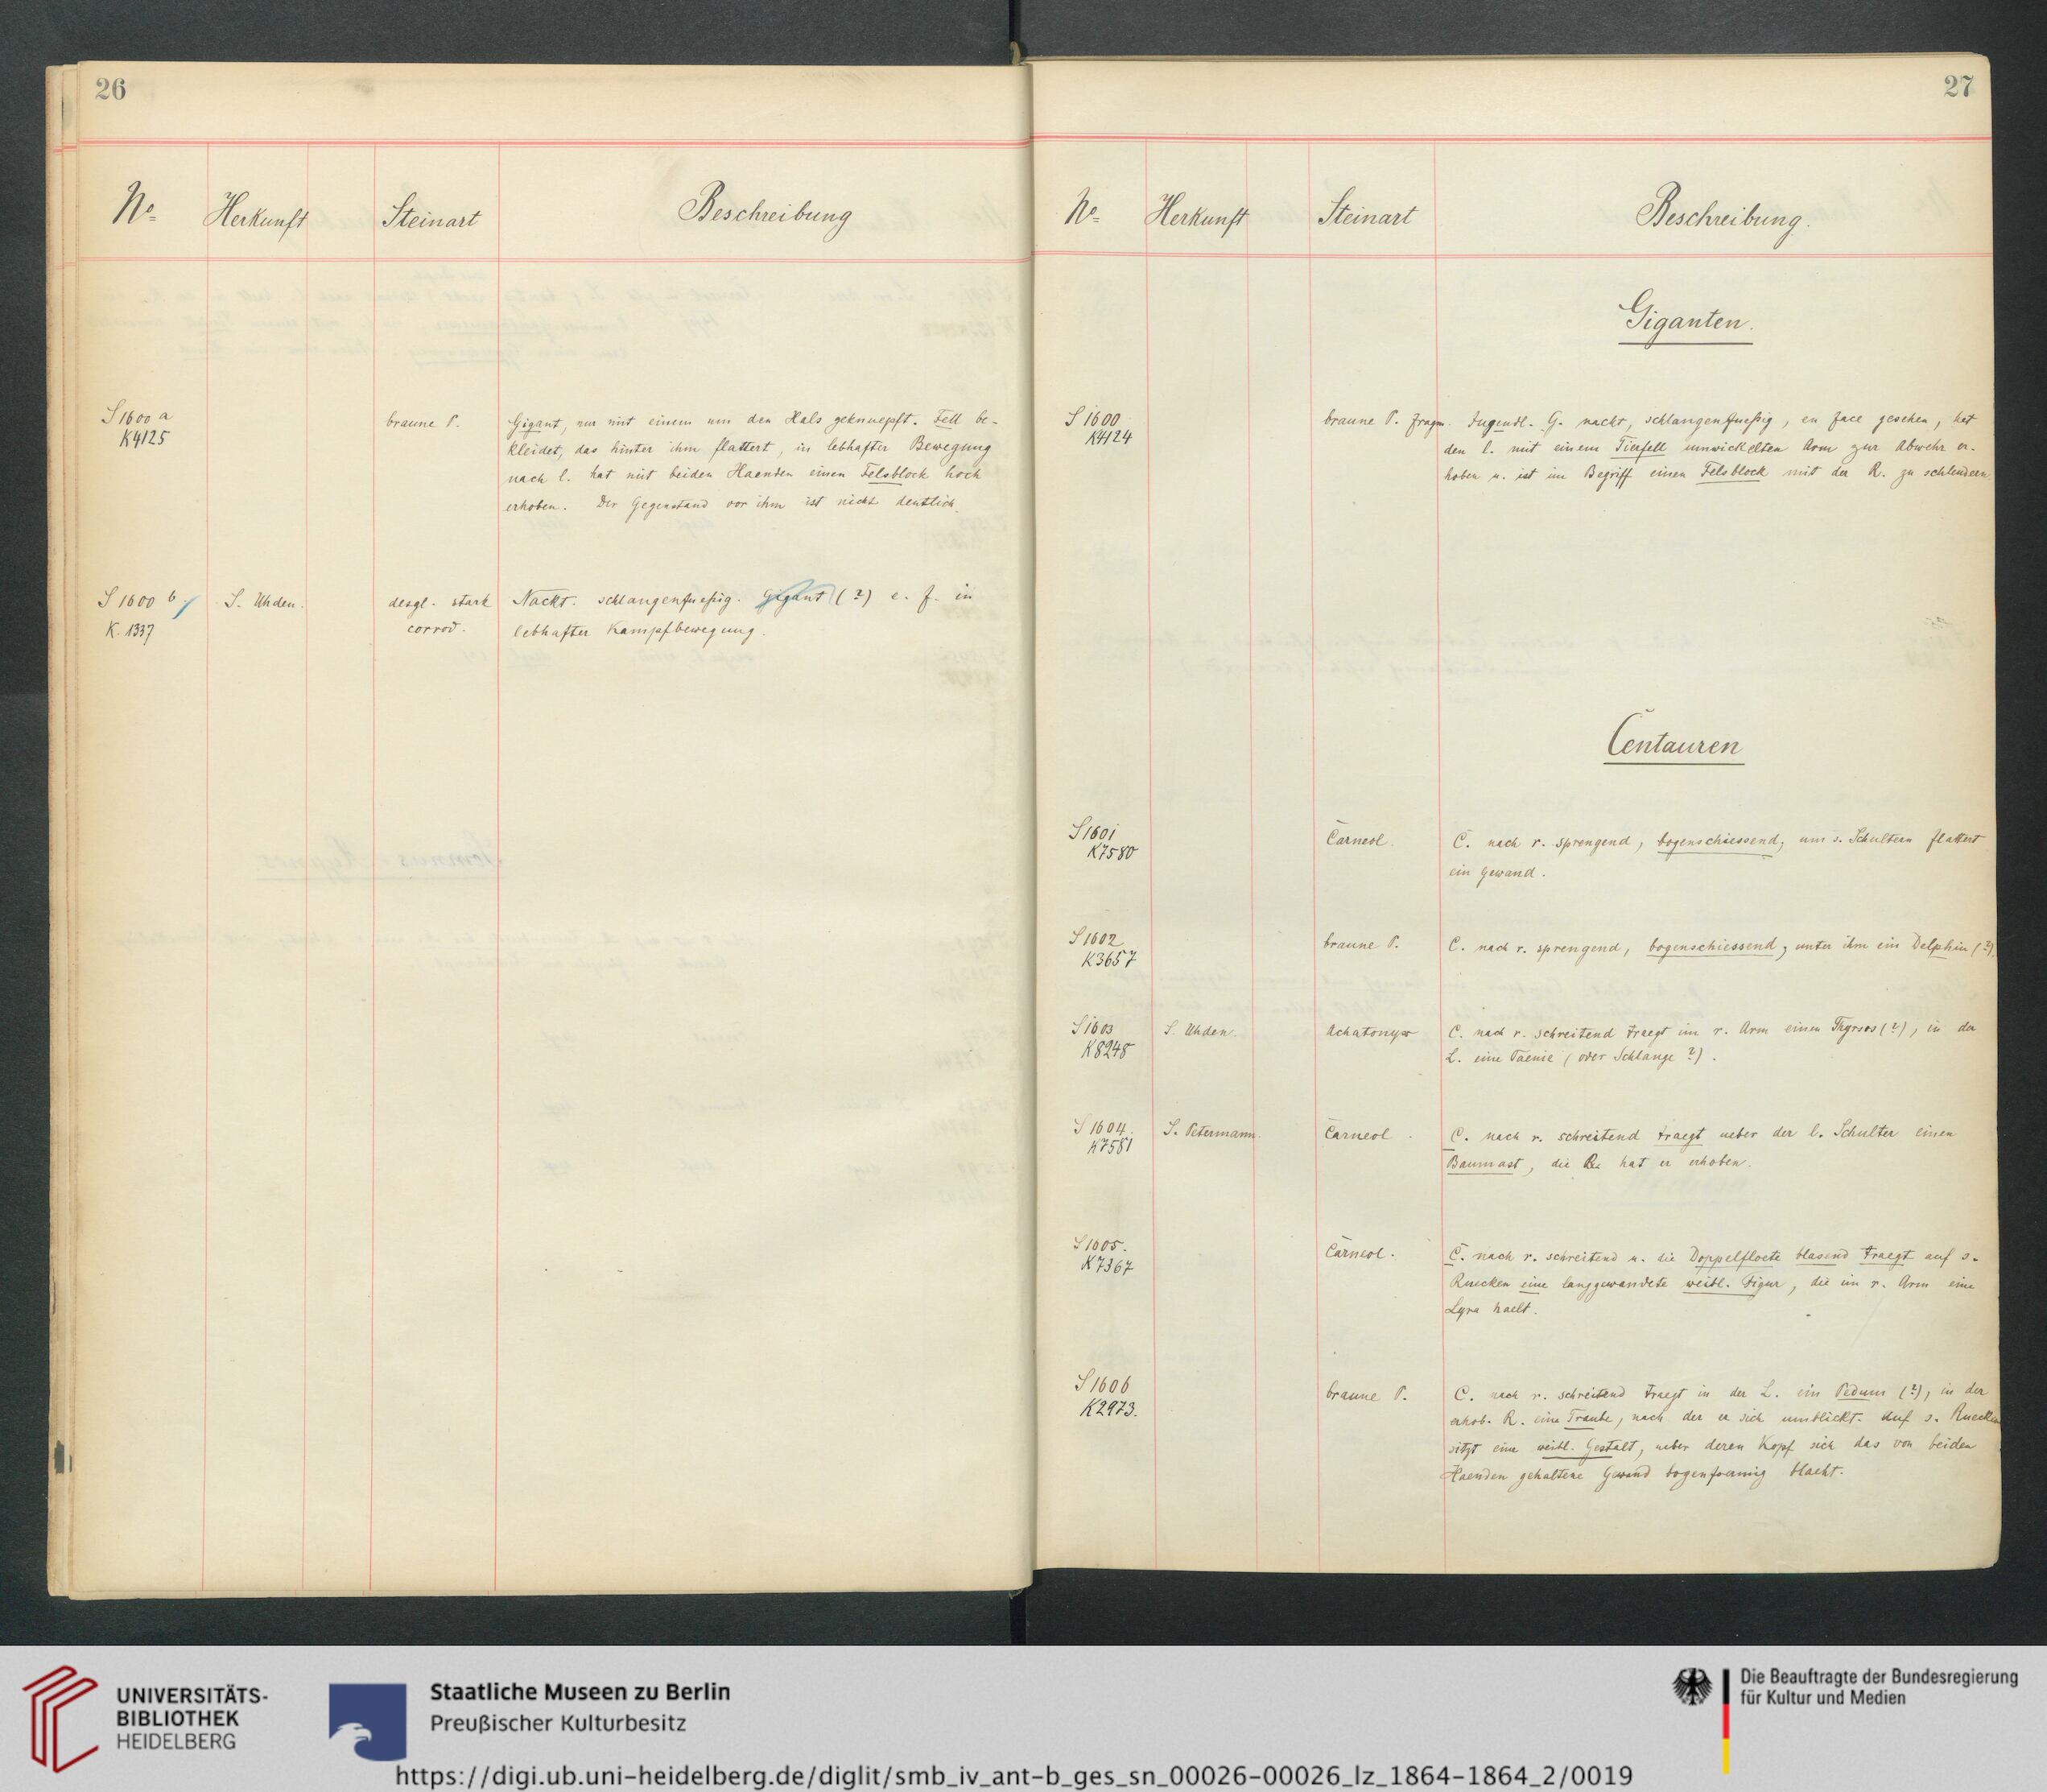 26
No Herkunft Steinart Beschreibung
S 1600 a
K4125
braune P.
Gigant, nur mit einem um den Hals geknuepft. Fell be-
kleidet, das hinter ihm flattert, in lebhafter Bewegung
nach l. hat mit beiden Haenden einen Felsblock hoch
erhoben. Der Gegenstand vor ihm ist nicht deutlich.
S 1600 b
K. 1337
S. Uhden.
desgl. stark
corrod.
Nackt. schlangenfuesig. Gigant (?) e. f. in
lebhafter Kampfbewegung.
27
No Herkunft Steinart Beschreibung.
Giganten.
S 1600
K4124
braune P. Fragm.
Jugendl. G. nackt, schlangenfuesig, en face gesehen, hat
den l. mit einem Tierfell umwickelten Arm zur Abwehr er-
hoben u. ist im Begriff einen Felsblock mit der R. zu schleudern.
Centauren
S 1601
K7580
Carneol.
C. nach r. sprengend, bogenschiessend, um s. Schultern flattert
ein Gewand.
S 1602
K3657
braune P.
C. nach r. sprengend, bogenschiessend, unter ihm ein Delphin (?).
S 1603
K8248
S. Uhden.
Achatonyx
C. nach r. schreitend traegt im r. Arm einen Thyrsos (?), in der
L. eine Taenie (oder Schlange ?).
S 1604.
K7581
S. Petermann.
Carneol.
C. nach r. schreitend traegt ueber der l. Schulter einen
Baumast, die Re hat er erhoben.
S 1605.
K7367
Carneol.
C. nach r. schreitend u. die Doppelfloete blasend traegt auf s.
Ruecken eine langgewandete weibl. Figur, die im r. Arm eine
Lyra haelt.
S 1606
K2973.
braune P.
C. nach r. schreitend traegt in der L. ein Pedum (?), in der
erhob. R. eine Traube, nach der er sich umblickt. Auf s. Ruecken
sitzt eine weibl. Gestalt, ueber deren Kopf sich das von beiden
Haenden gehaltene Gewand bogenfoermig blaeht.
UNIVERSITÄTS-
BIBLIOTHEK
HEIDELBERG
Staatliche Museen zu Berlin
Preußischer Kulturbesitz
Die Beauftragte der Bundesregierung
für Kultur und Medien
https://digi.ub.uni-heidelberg.de/diglit/smb_iv_ant-b_ges_sn_00026-00026_lz_1864-1864_2/0019